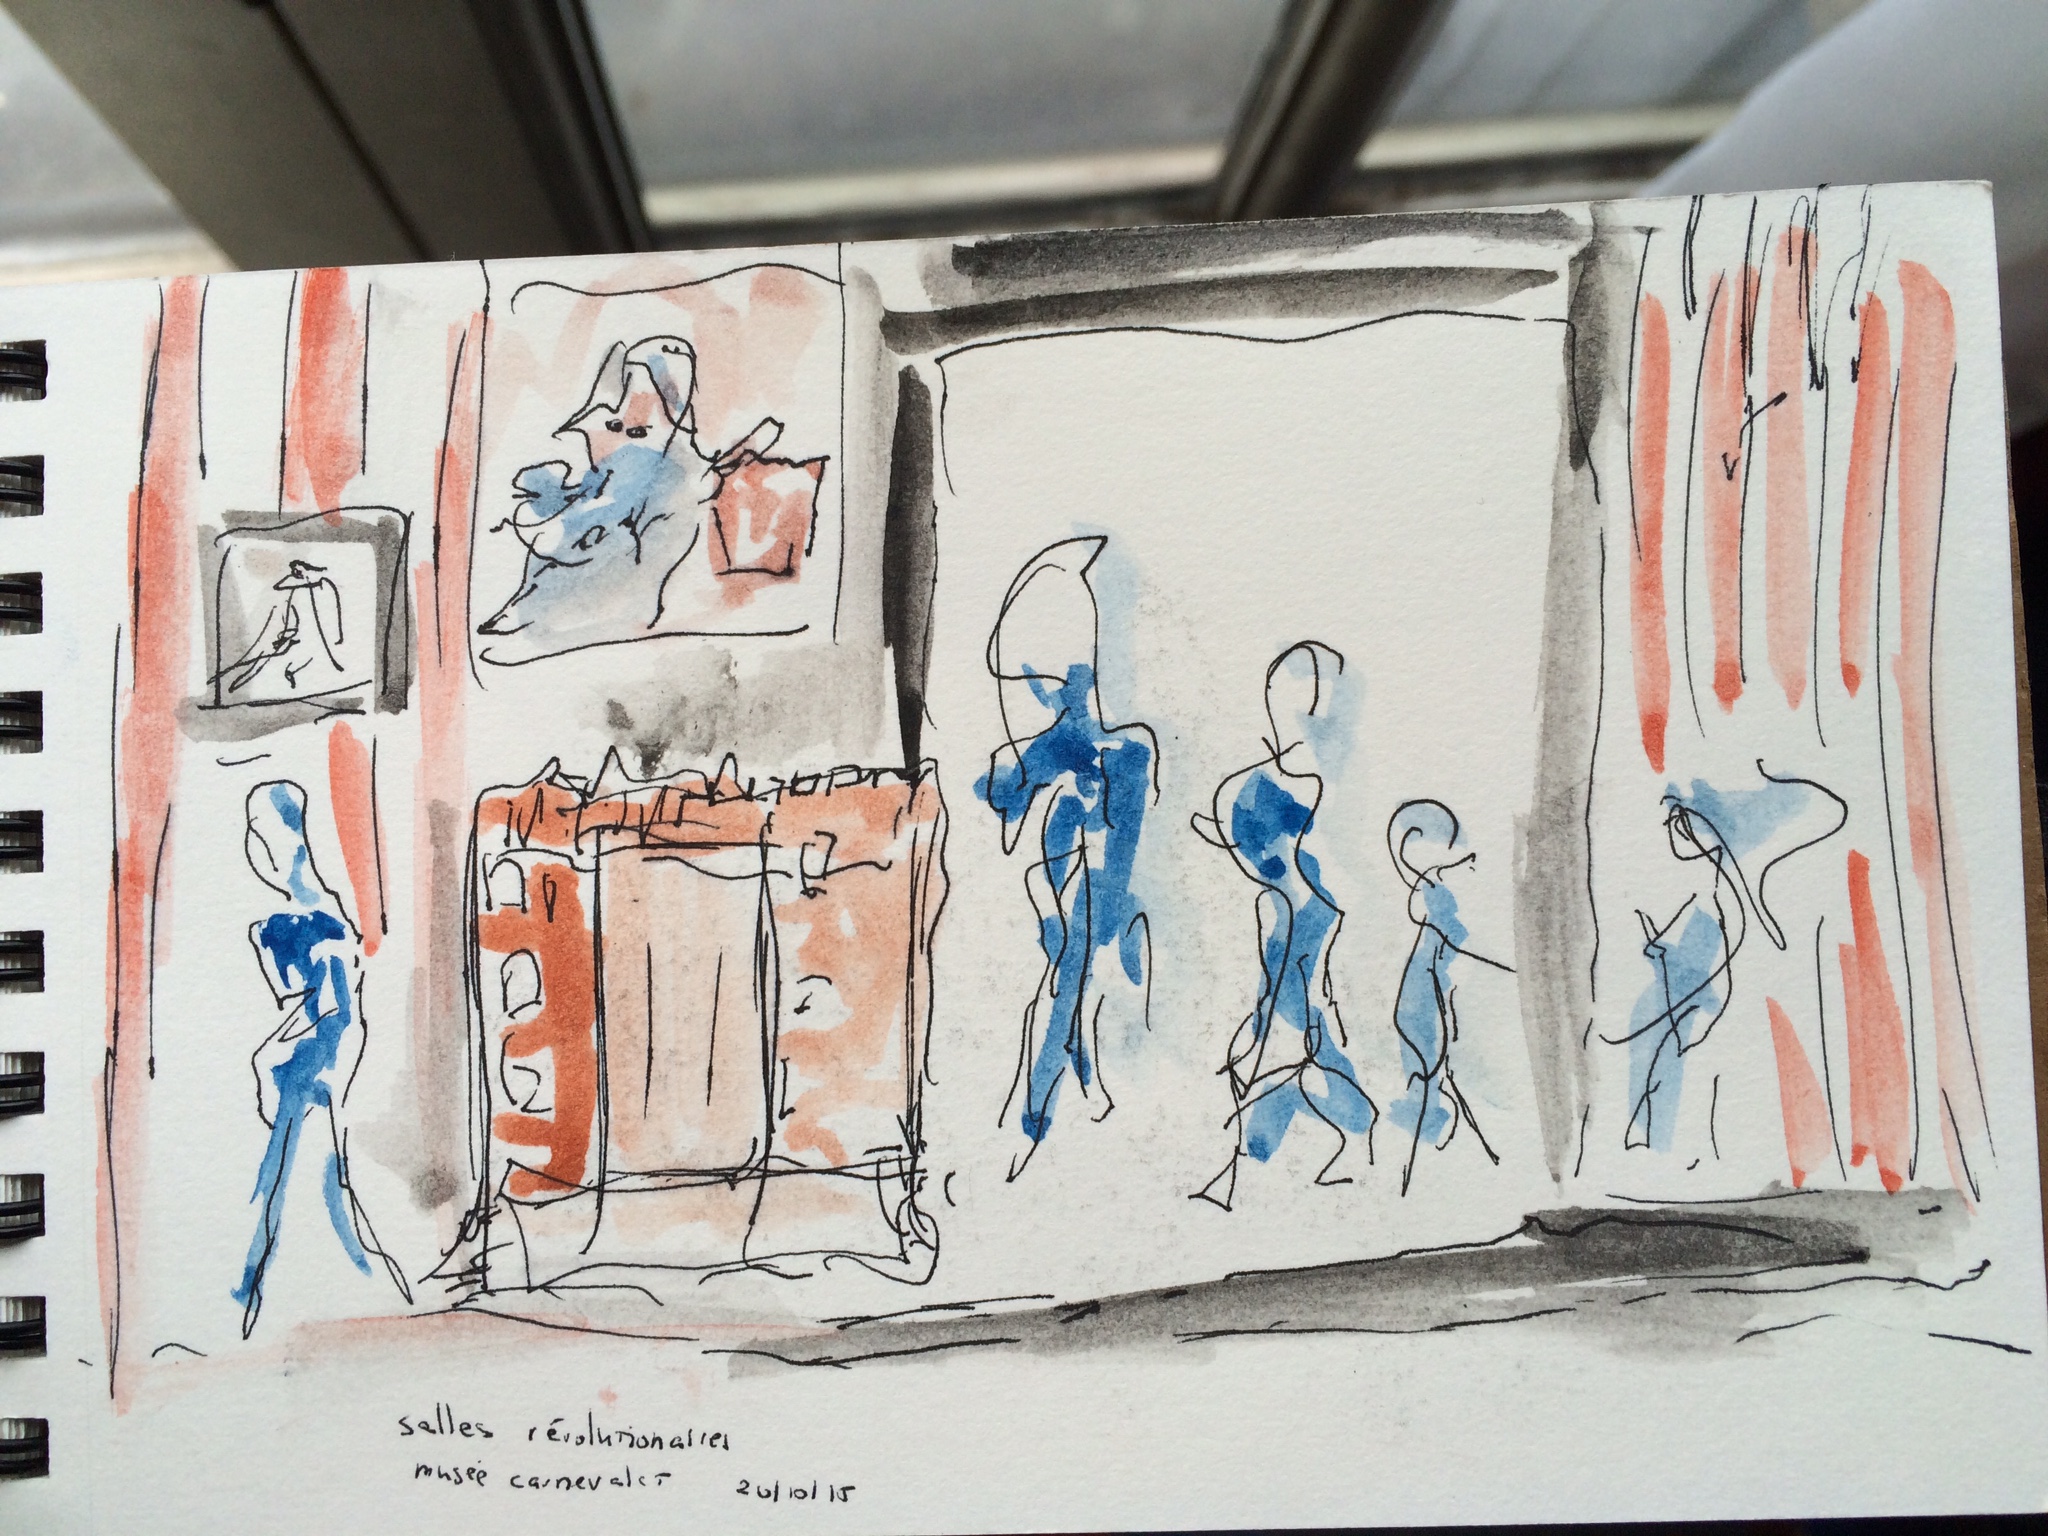 salles révolutionaires
musée carnevalet 20/10/15